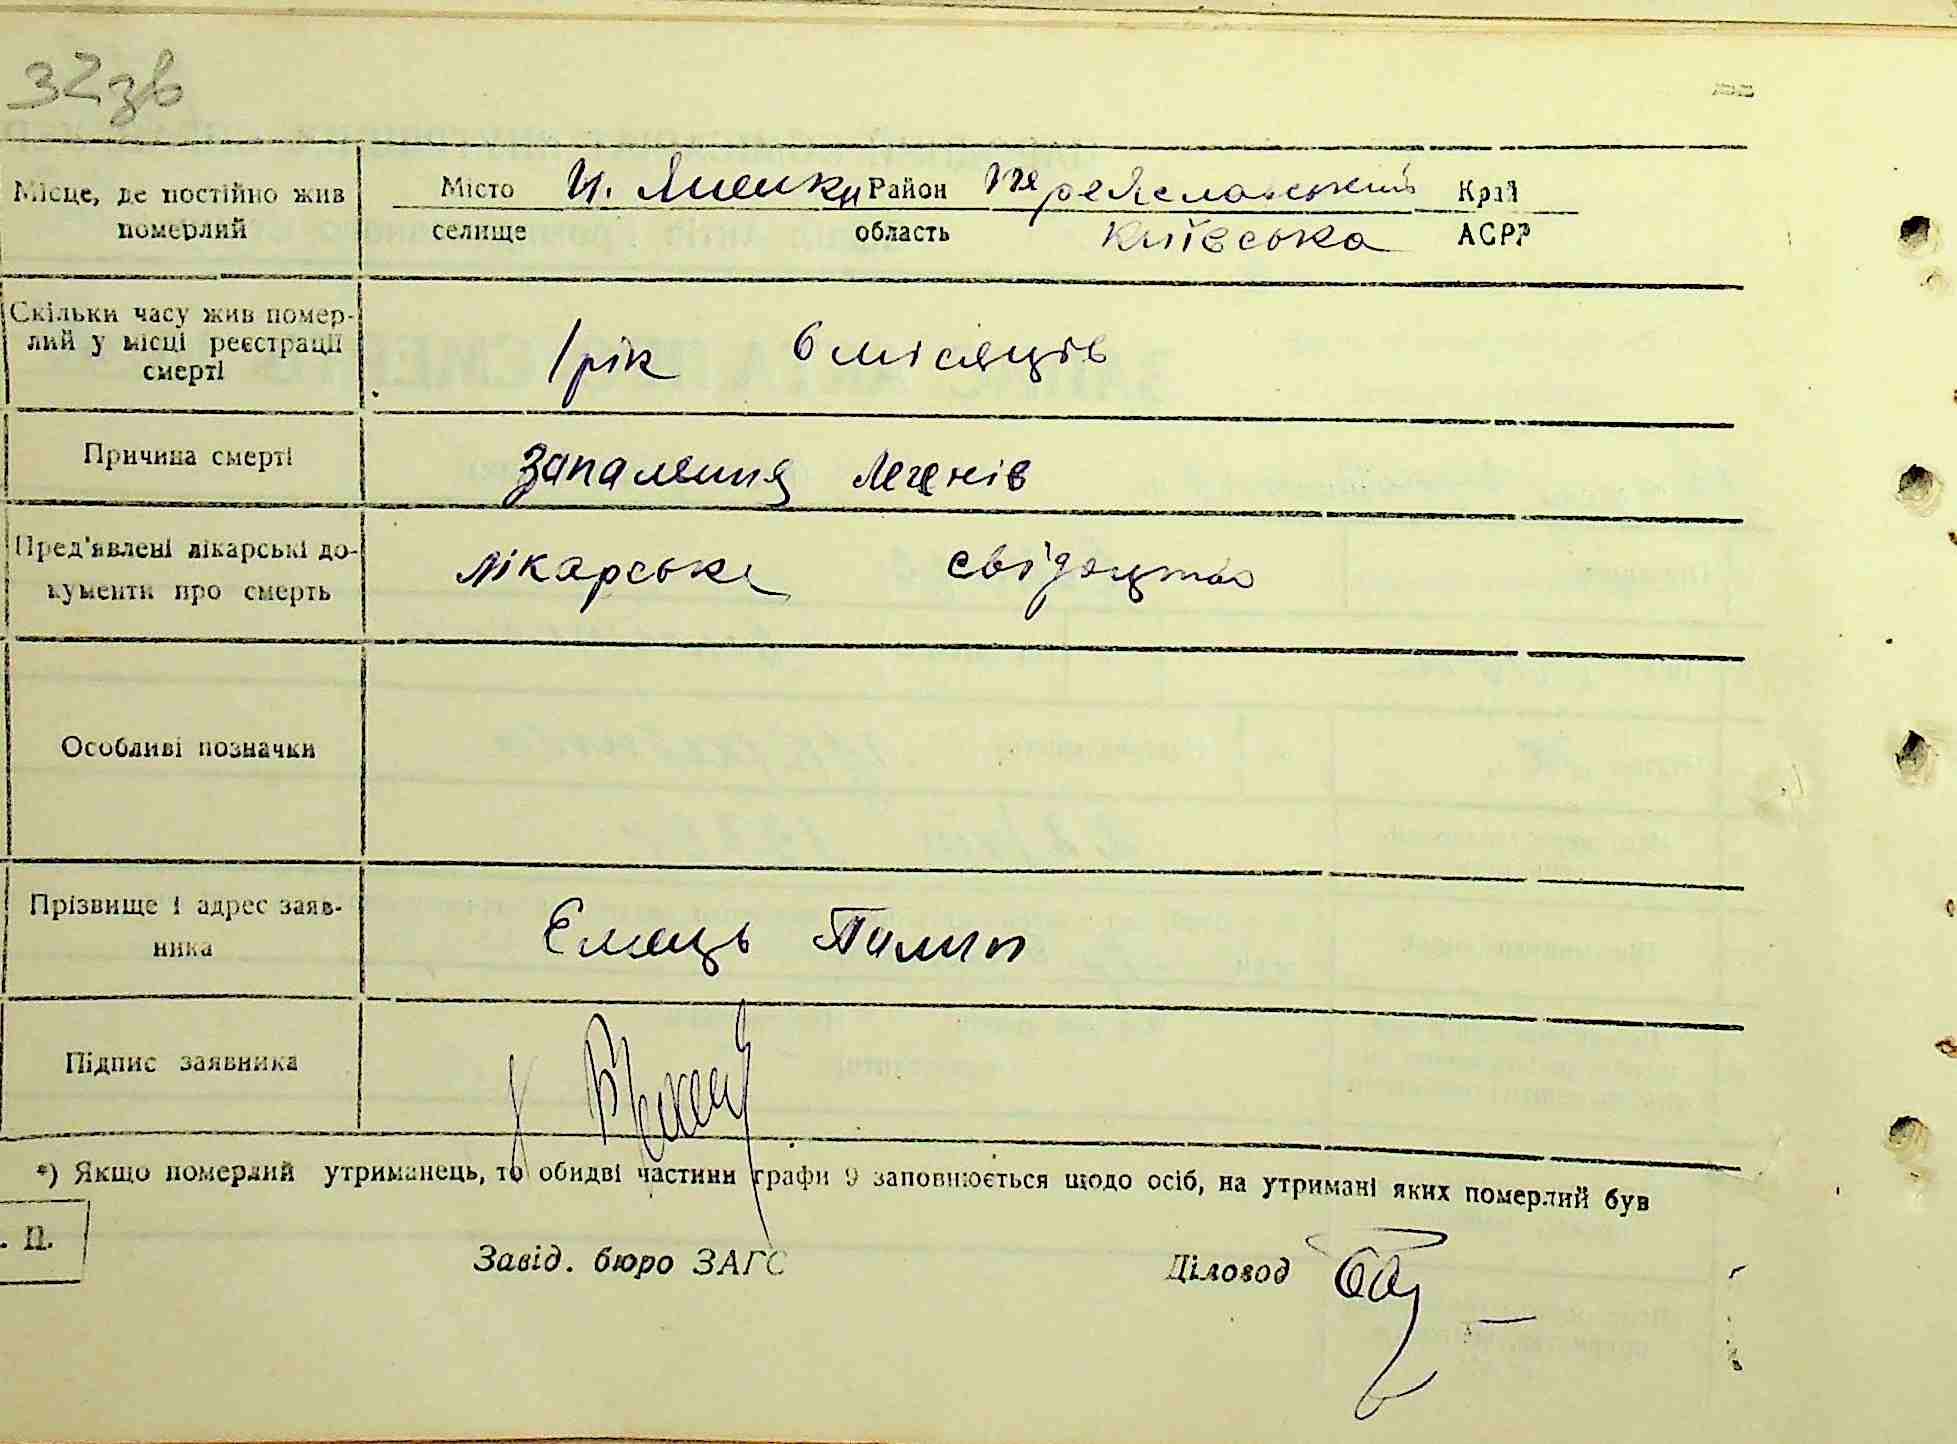 32зв
Місце, де постійно жив
померлий
Місто Район Переяславський Край
селище область Київська АСРР
Скільки часу жив помер-
лий у місці реєстрації
смерті
1 рік 6 місяців
Причина смерті
Запалення легенів
Пред'явлені лікарські до-
кументи про смерть
лікарське свідоцтво
Особливі позначки
Прізвище і адрес заяв-
ника
Ємець
Підпис заявника
*) Якщо померлий утриманець, то обидві частини графи 9 заповнюється щодо осіб, на утримані яких померлий був
. П.
Завід. бюро ЗАГС
Діловод